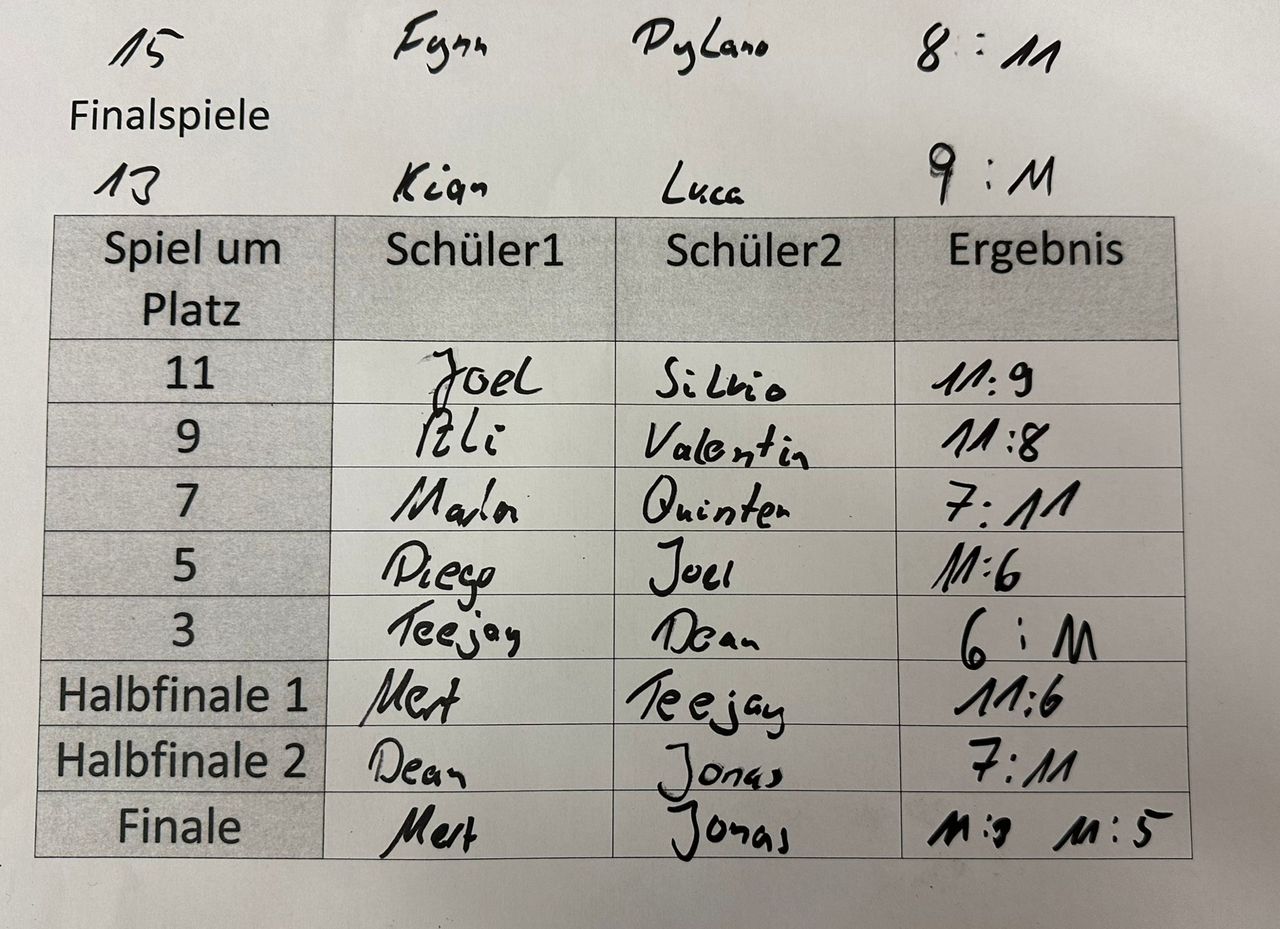 15 Fynn Dylano 8 : 11
Finalspiele
13 Kian Luca 9 : 11
Spiel um Platz Schüler1 Schüler2 Ergebnis
11 Joel Silvio 11:9
9 Ali Valentin 11:8
7 Marlon Quinten 7:11
5 Diego Joel 11:6
3 Teejay Dean 6 : 11
Halbfinale 1 Mert Teejay 11:6
Halbfinale 2 Dean Jonas 7:11
Finale Mert Jonas 11:9 11:5